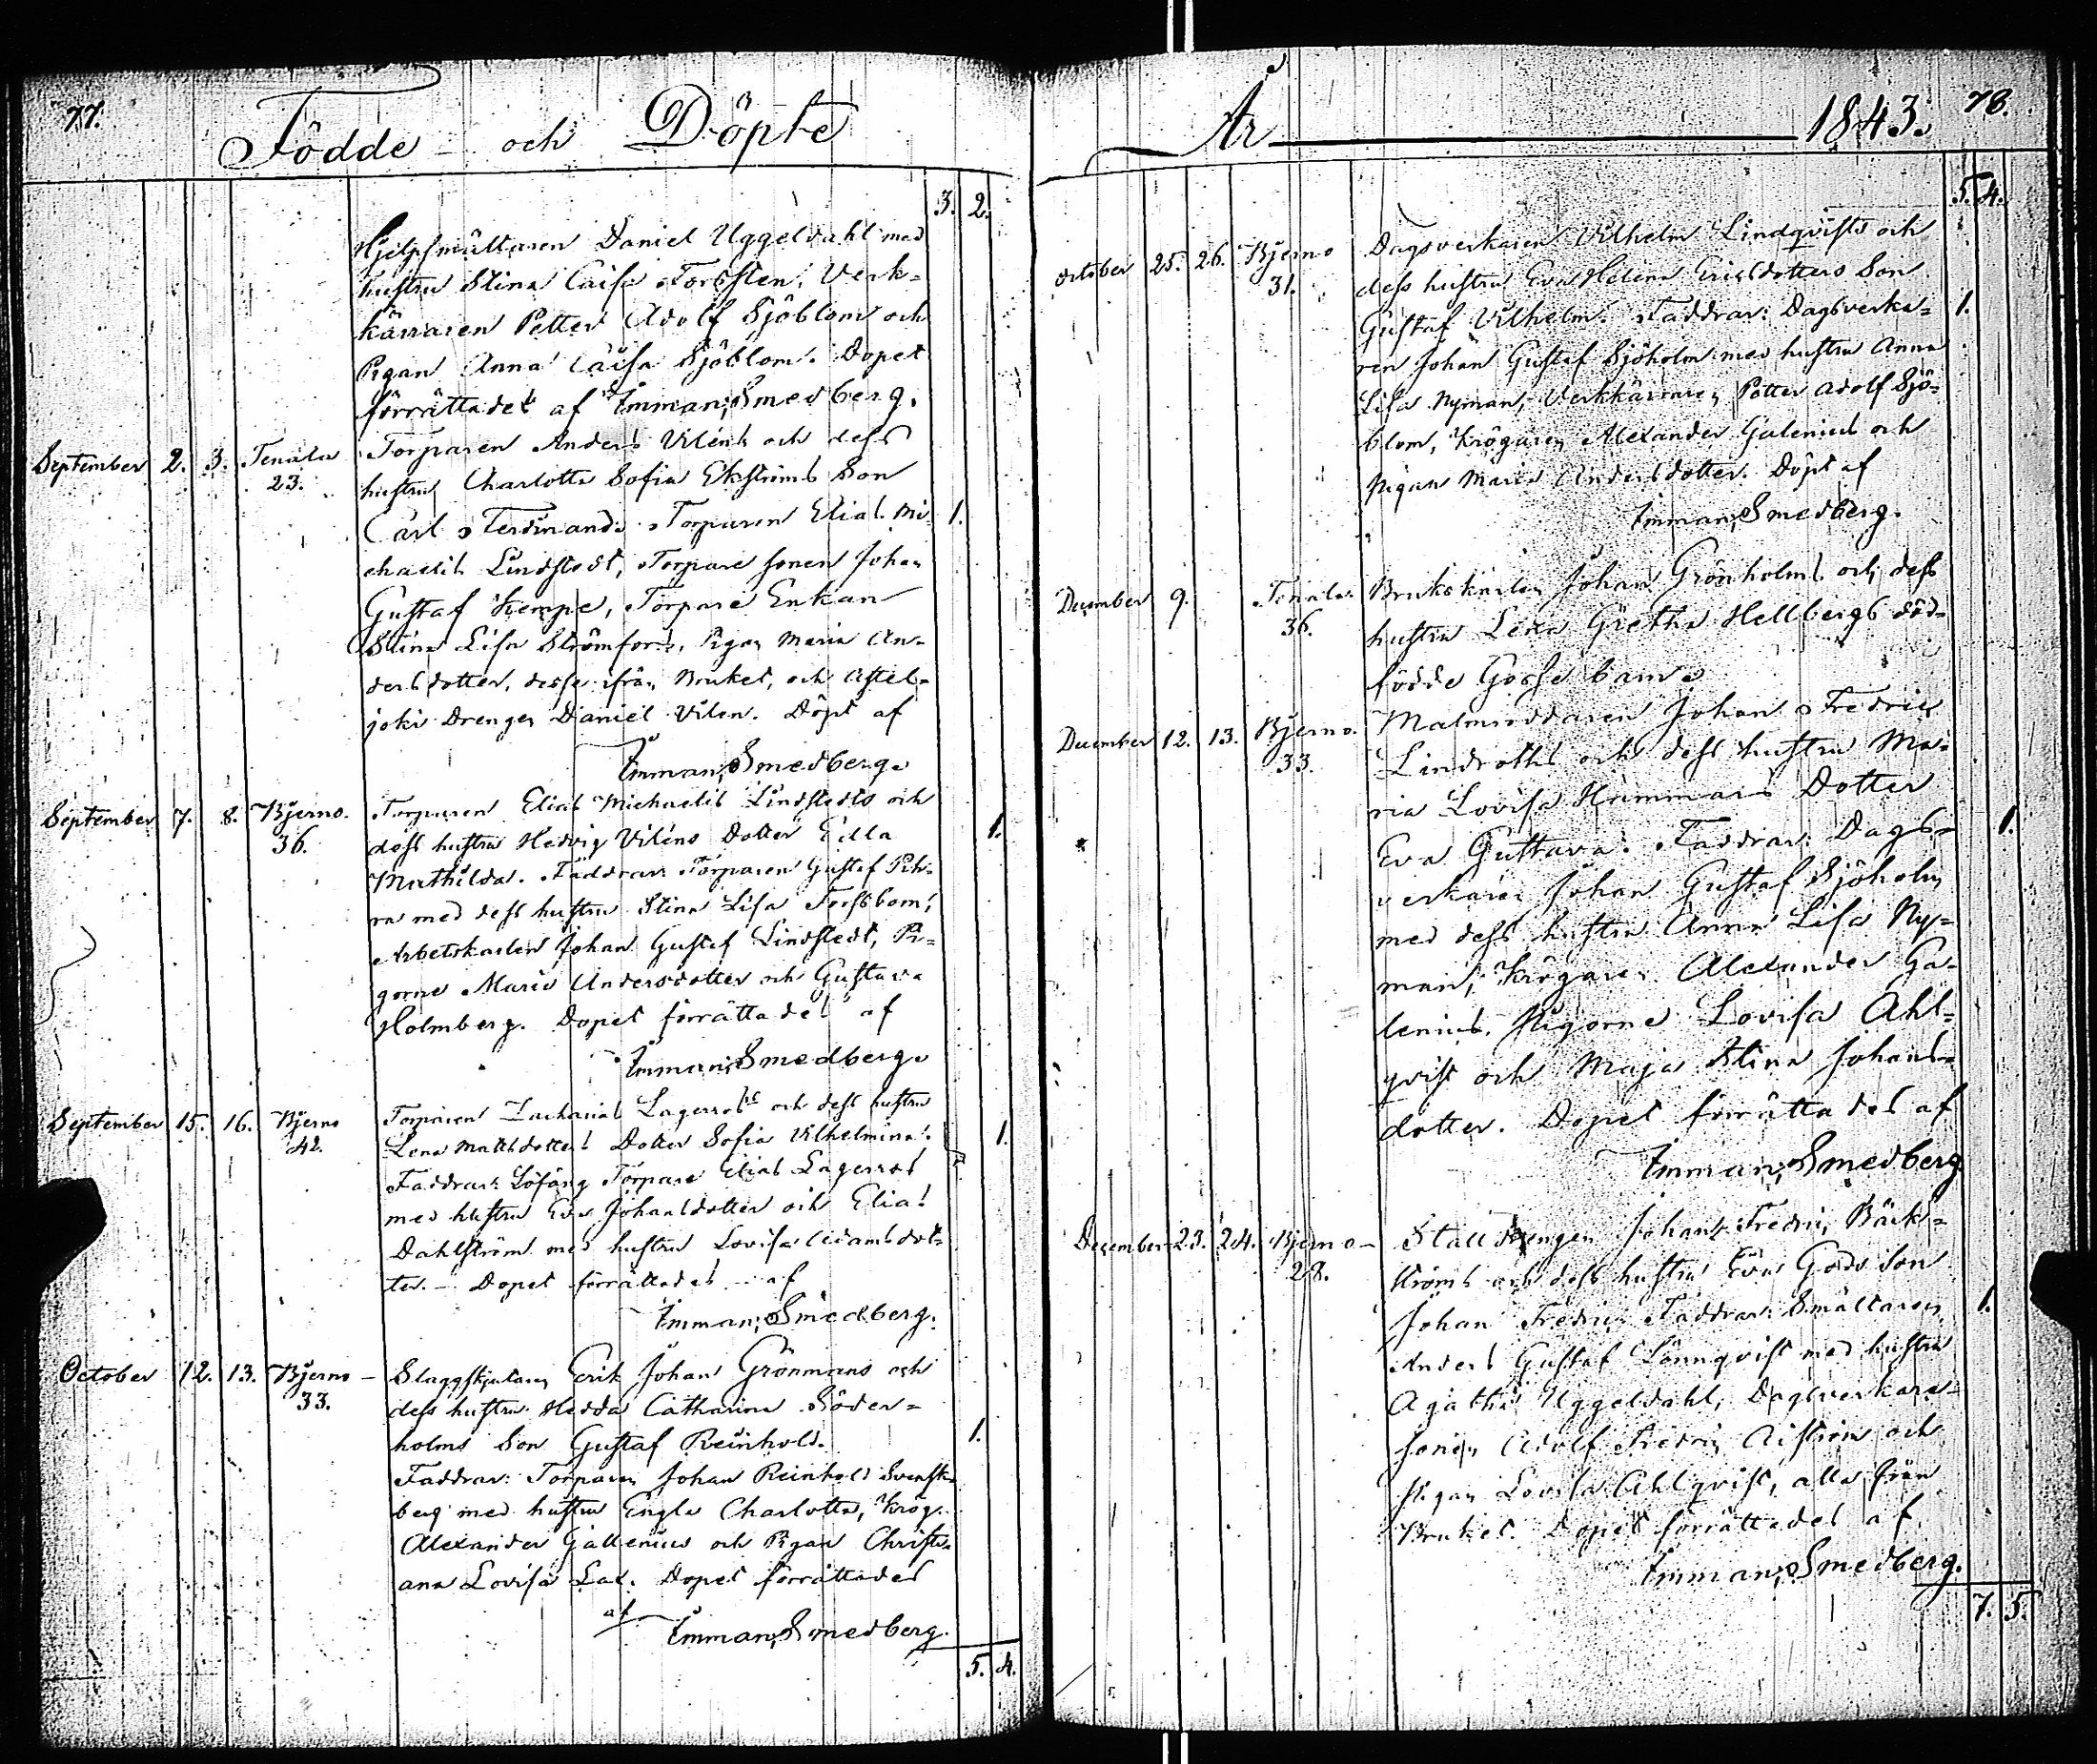 77.
Födde och Döpte
3. 2.
Hjelpsmältaren Daniel Uggeldahl med
hustru Stina Caisa Forssten, Verk-
kärraren Petter Adolf Sjöblom och
Pigan Anna Caisa Sjöblom. Dopet
förrättadet af Imman: Smedberg.
September 2. 3. Tenala Torparen Anders Viléns och dess
23. hustru Charlotta Sofia Ekströms Son
Carl Ferdinand. Torparen Elias Mi- 1.
chaelis Lindstedt, Torpare sonen Johan
Gustaf Kempe, Torpare Enkan
Stina Lisa Strömfors, Pigan Maria An-
dersdotter, desse ifrån Bruket, och
joki Drengen Daniel Vilen. Döpt af
Imman: Smedberg.
September 7. 8. Bjerno. Torparen Elias Michaelis Lindstedts och
36. dess hustru Hedvig Viléns Dotter Edla 1.
Mathilda. Faddrar: Torparen Gustaf Pih-
ra med dess hustru Stina Lisa Forssbom,
Arbetskarlen Johan Gustaf Lindstedt, Pi-
gorne Maria Andersdotter och Gustava
Holmberg. Dopet förrättadet af
Imman: Smedberg.
September 15. 16. Bjerno Torparen Zacharias Lagerros och dess hustru
42. Lena Mattsdotters Dotter Sofia Vilhelmina. 1.
Faddrar: Torpare Elias Lagerros
med hustru Eva Johansdotter och Elias
Dahlström med hustru Lovisa Adamsdot-
ter. Dopet förrättadet af
Imman: Smedberg.
October 12. 13. Bjerno Slaggskjutaren Erik Johan Grönmans och
33. dess hustru Hedda Catharina Söder-
holms Son Gustaf Reinhold. 1.
Faddrar: Torparen Johan Reinhold Svensk-
berg med hustru Engla Charlotta, Krög.
Alexander Gallenius och Pigan Christi-
ana Lovisa Lax. Dopet förrättadet
af
Imman: Smedberg.
5. 4.
År 1843. 78.
5. 4.
October 25. 26. Bjerno Dagsverkaren Vilhelm Lindqvists och
31. dess hustru Eva Helena Ericsdotters Son
Gustaf Vilhelm. Faddrar: Dagsverka- 1.
ren Johan Gustaf Sjöholm med hustru Anna
Lisa Nyman, Verkkärraren Petter Adolf Sjö-
blom, Krögaren Alexander Galenius och
Pigan Maria Andersdotter. Döpt af
Imman: Smedberg.
December 9. Tenala Brukskarlen Johan Grönholms och dess
36. hustru Lena Gretha Hellbergs död-
födde Gosse barn
December 12. 13. Bjerno. Johan Fredric
33. Lindroths och dess hustru Ma-
ria Lovisa Hammars Dotter
Eva Gustava. Faddrar: Dags- 1.
verkaren Johan Gustaf Sjöholm
med dess hustru Anna Lisa Ny-
man, Krögaren Alexander Ga-
lenius. Pigorne Lovisa Ahl-
qvist och Maja Stina Johans-
dotter. Dopet förrättadet af
Imman: Smedberg
December 23. 24. Bjerno Stalldrengen Johan Fredric Bäck-
28. ströms och dess hustru Eva Gods Son
Johan Fredric. Faddrar: Smältaren 1.
Anders Gustaf Lönnqvist med hustru
Agatha Uggeldahl, Dagsverkare-
sonen Adolf Fredric och
Pigan Lovisa Ahlqvist, alla från
Bruket. Dopet förrättadet af
Imman: Smedberg.
7. 5.